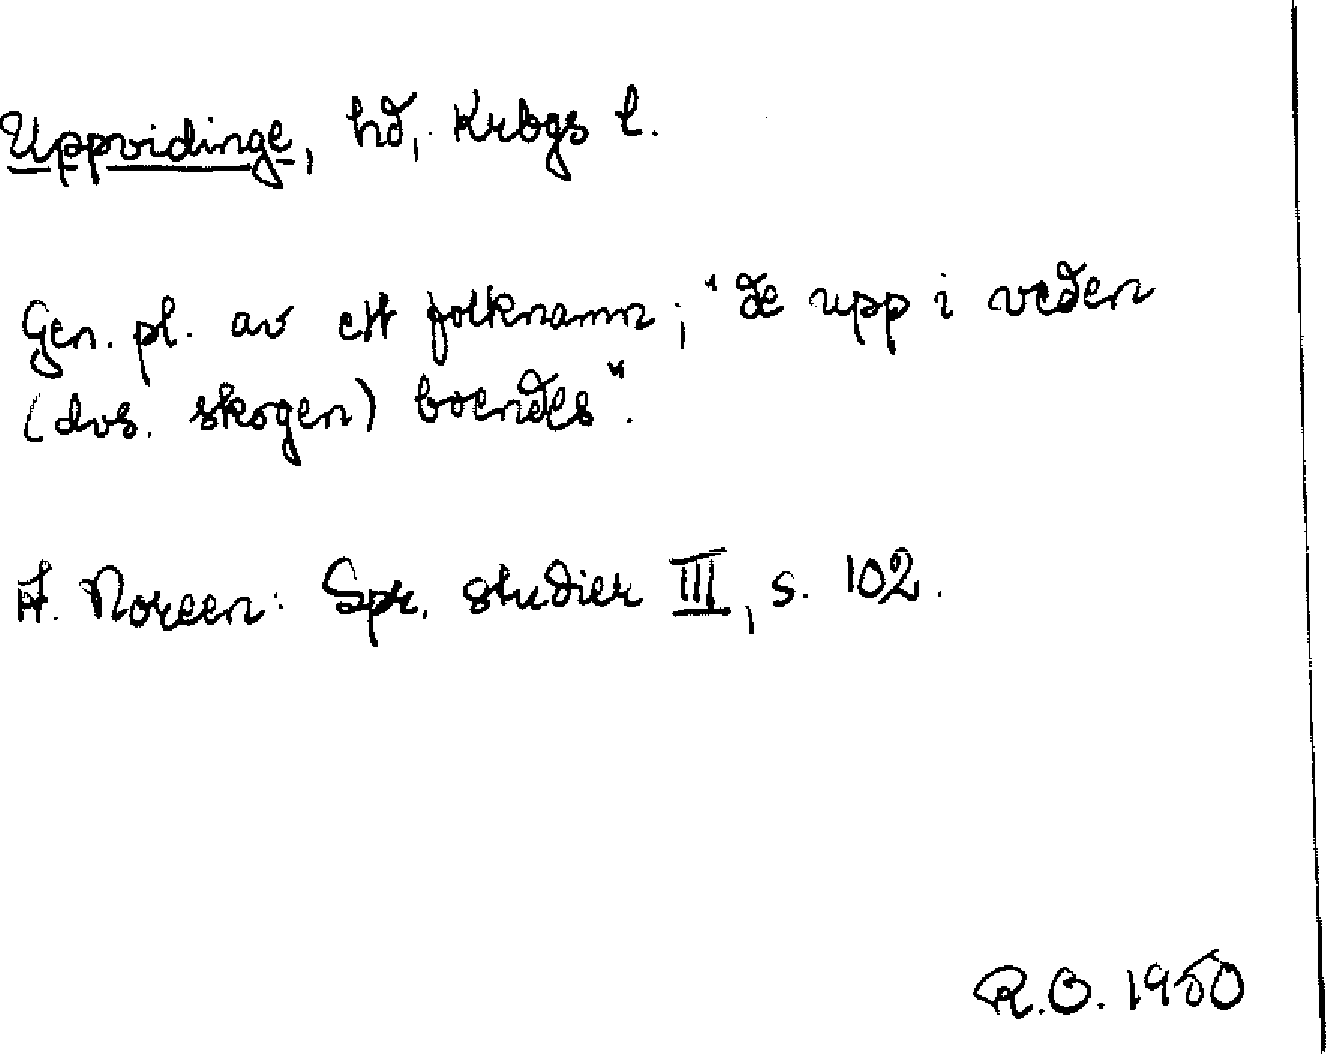 Uppvidinge, hd, Krbgs l.
Gen. pl. av ett folknamn; "de upp i veden
(dvs. skogen) boendes".
A. Noreen: Spr. studier III, s. 102.
R.O. 1950